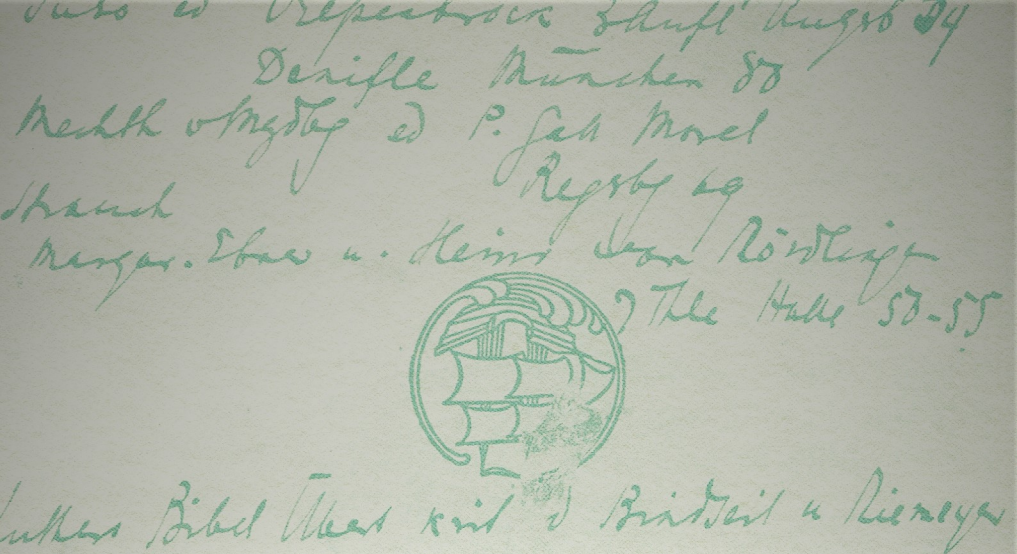 Suso ed Diepenbrock 3 Aufl Augsb 54
Denifle München 80
Mechth v Mgdbg ed P. Gall Morel
Regsbg 69
Strauch
Margar. Ebner u. Heinr von Nördlingen
Halle
Luthers Bibel Übers krit Bindseil u Niemeyer